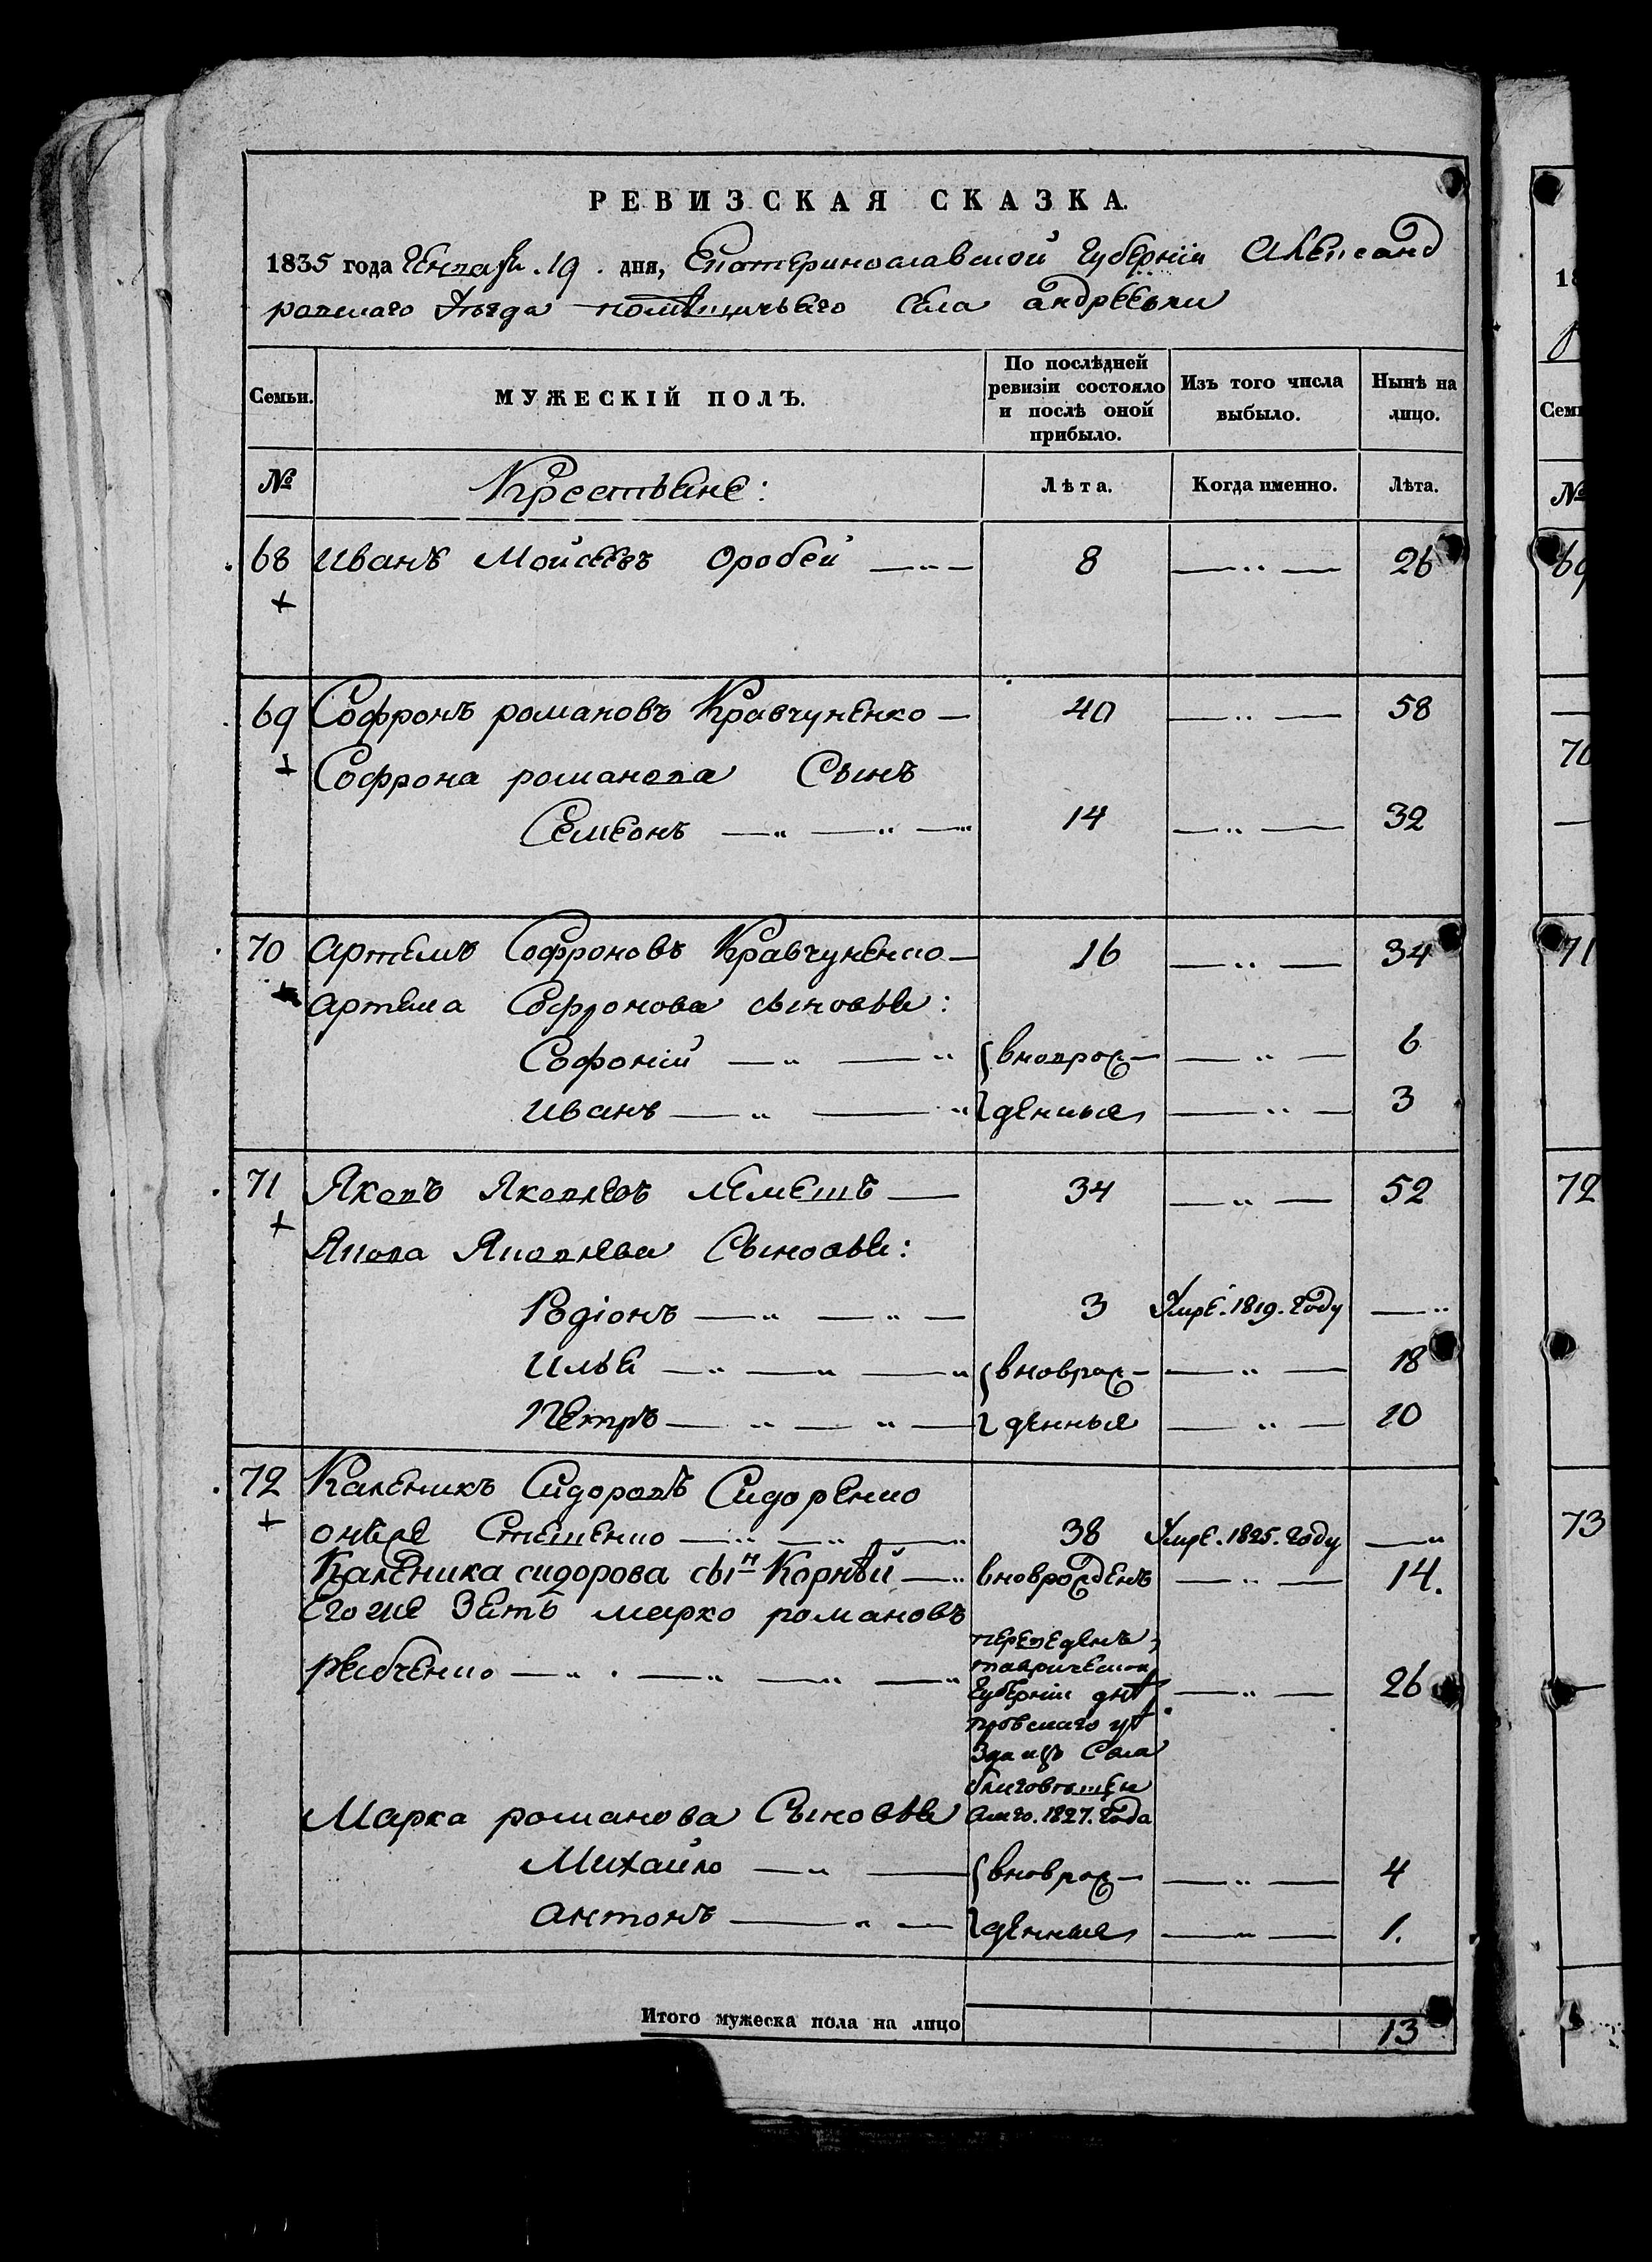 РЕВИЗСКАЯ СКАЗКА.
1835 года Генваря . 19 . дня, Екатеринославской Губернiи Александ
ровскаго Уѣзда помѣщичьяго Села андреевки
Семьи. МУЖЕСКIЙ ПОЛЪ. По послѣдней ревизiи состояло и послѣ оной прибыло. Изъ того числа выбыло. Нынѣ на лицо.
№ Крестьяне: Лѣта. Когда именно. Лѣта.
68 Иванъ Мойсеевъ Оробей 8 26
69 Софронъ романовъ Кравчуненко 40 58
Софрона романова Сынъ
Семеонъ 14 32
70 Артемъ Софроновъ Кравчуненко 16 34
Артема Софронова сыновья:
Софонiй вновьрож- 6
Иванъ денныя 3
71 Яковъ Яковлевъ лемешъ 34 52
Якова Яковлева Сыновья:
Родiонъ 3 Умре. 1819. Году
Илья вноврож- 18
Петръ денныя 10
72 Каленикъ Сидоровъ Сидоренко
онже Стешенко 38 Умре. 1825. Году
Каленика сидорова сынъ Корнѣй вноврожденъ 14.
Его же Зять марко романовъ
рябченко 26
переведенъ
таврической
Губернiи днѣ
провскаго уѣ
зда изъ Села
благовѣщен
скаго. 1827. Года
Марка романова Сыновья
Михайло вноврож- 4
антонъ денныя 1.
Итого мужеска пола на лицо 13
18
Семь
№
69
70
71
72
73